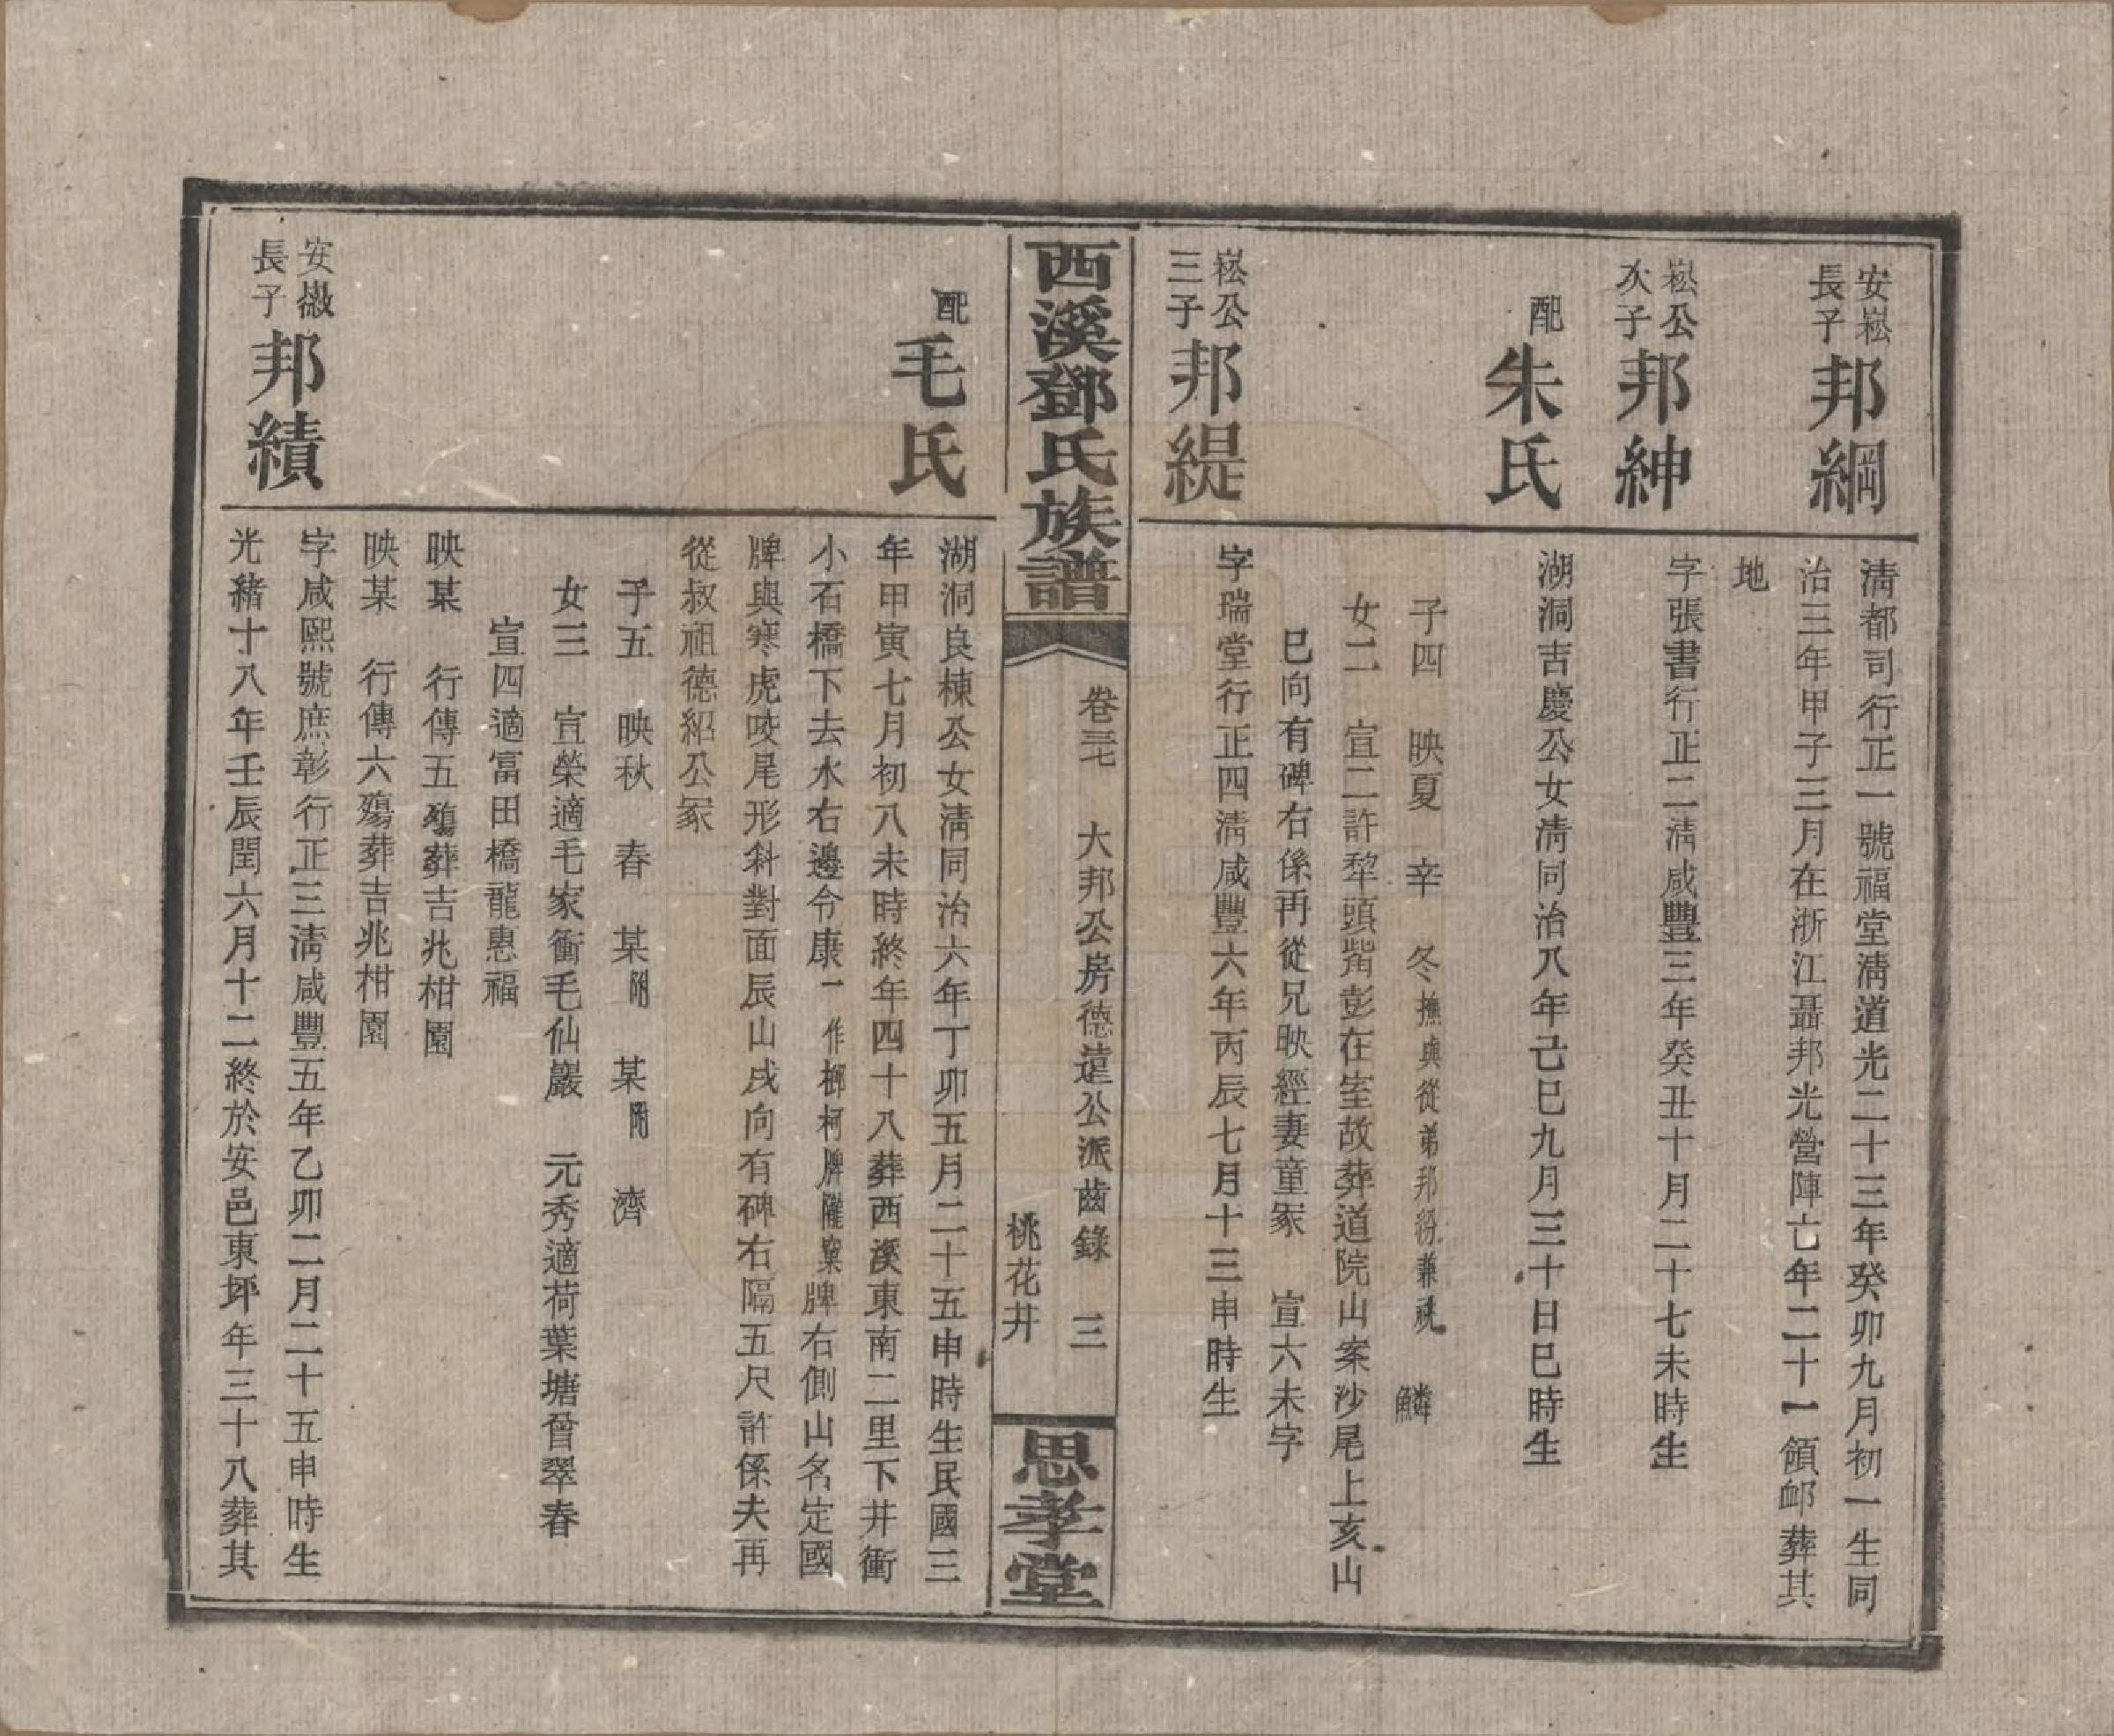 安崧
長子
邦綱
清都司行正一號福堂清道光二十三年癸卯九月初一生同
治三年甲子三月在浙江聶邦光營陣亡年二十一領卹葬其
地
崧公
次子
邦紳
字張書行正二清咸豐三年癸丑十月二十七未時生
配
朱氏
湖洞吉慶公女清同治八年己巳九月三十日巳時生
子四 映夏 辛 冬撫與從弟邦紛兼祧 鱗
女二 宣二許犂頭觜彭在室故葬道院山案沙尾上亥山
巳向有碑右係再從兄映經妻童冢 宣六未字
崧公
三子
邦緹
字瑞堂行正四清咸豐六年丙辰七月十三申時生
西溪鄧氏族譜
卷三七 大邦公房德遠公派齒錄 三
桃花井
思孝堂
配
毛氏
湖洞良棟公女清同治六年丁卯五月二十五申時生民國三
年甲寅七月初八未時終年四十八葬西溪東南二里下井衝
小石橋下去水右邊令康一作榔柯牌隴窠牌右側山名定國
牌與寒虎咬尾形斜對面辰山戌向有碑右隔五尺許係夫再
從叔祖德紹公冢
子五 映秋 春 某附 某附 濟
女三 宣榮適毛家衝毛仙巖 元秀適荷葉塘曾翠春
宣四適富田橋龍惠福
映某 行傳五殤葬吉兆柑園
映某 行傳六殤葬吉兆柑園
安嶶
長子
邦績
字咸熙號庶彰行正三清咸豐五年乙卯二月二十五申時生
光緒十八年壬辰閏六月十二終於安邑東坪年三十八葬其